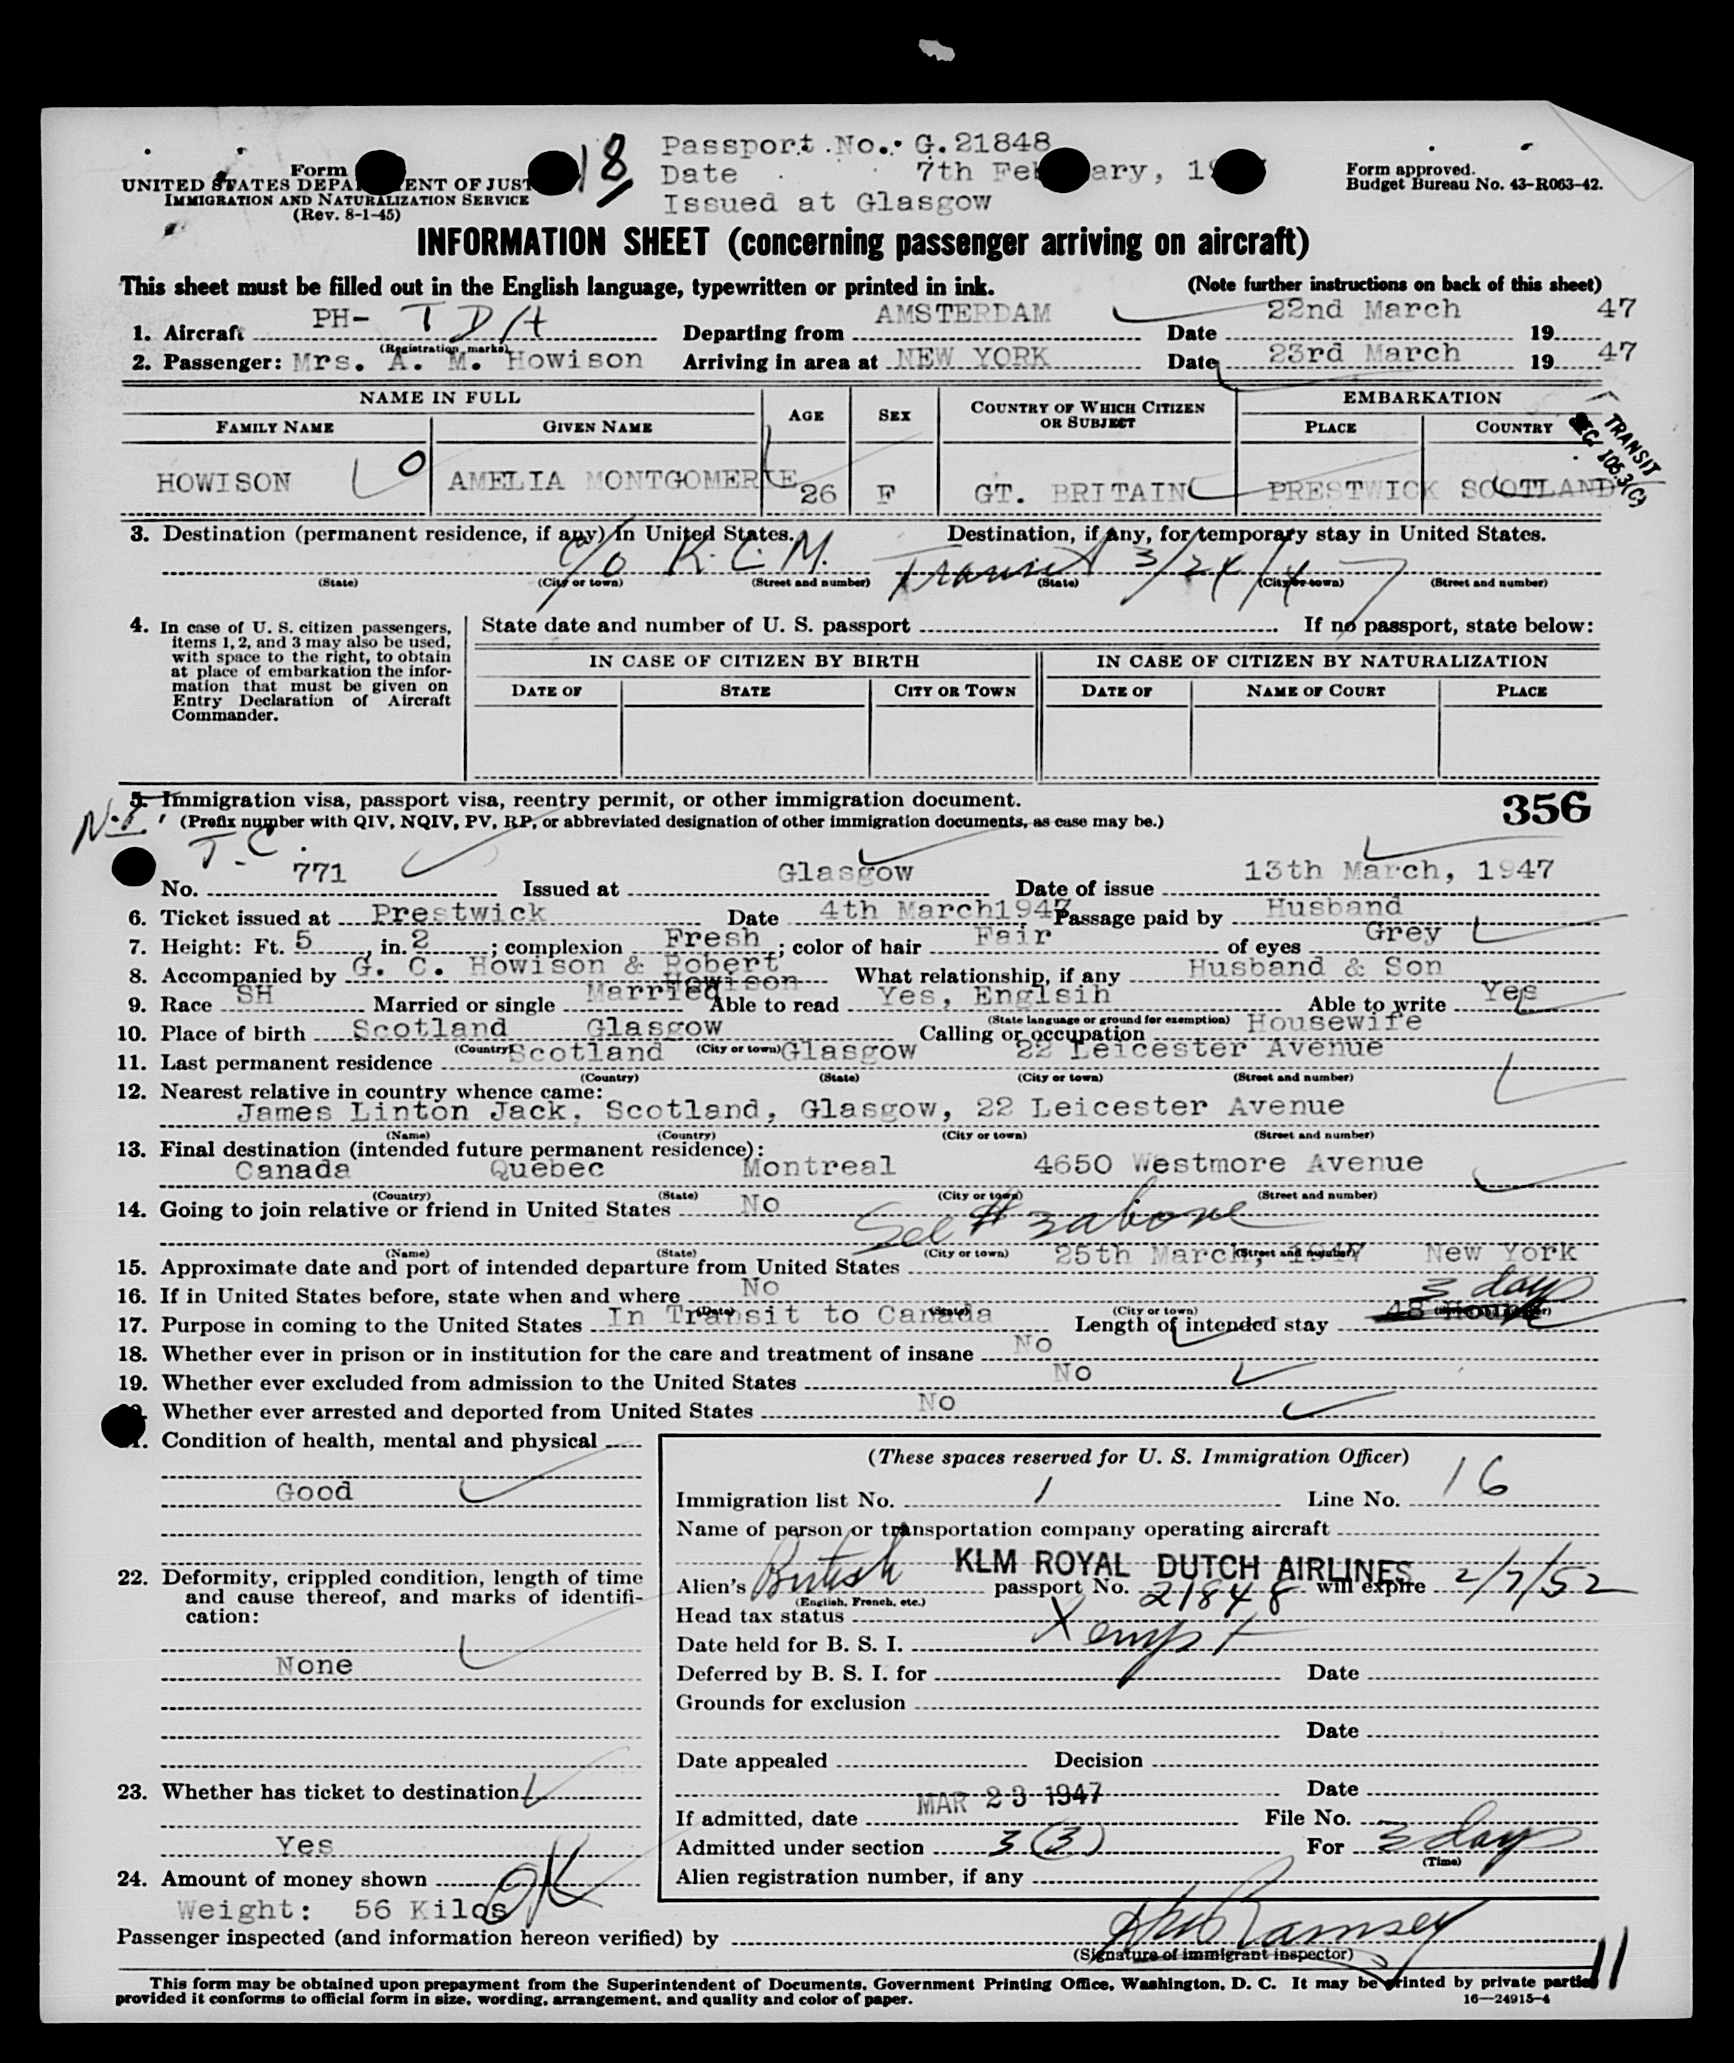 18
Passport No.: G.21848
Date 7th February, 19
Issued at Glasgow
Form
UNITED STATES DEPARTMENT OF JUST
IMMIGRATION AND NATURALIZATION SERVICE
(Rev. 8-1-45)
Form approved.
Budget Bureau No. 43-R063-42.
INFORMATION SHEET (concerning passenger arriving on aircraft)
This sheet must be filled out in the English language, typewritten or printed in ink. (Note further instructions on back of this sheet)
1. Aircraft PH- TDA Departing from AMSTERDAM Date 22nd March 1947
(Registration marks)
2. Passenger: Mrs. A. M. Howison Arriving in area at NEW YORK Date 23rd March 1947
NAME IN FULL AGE SEX COUNTRY OF WHICH CITIZEN OR SUBJECT EMBARKATION
FAMILY NAME GIVEN NAME PLACE COUNTRY
TRANSIT
SEC. 105.3(C)
HOWISON O AMELIA MONTGOMERIE 26 F GT. BRITAIN PRESTWICK SCOTLAND
3. Destination (permanent residence, if any) in United States. Destination, if any, for temporary stay in United States.
c/o K.L.M. Transit 3/24/47
(State) (City or town) (Street and number) (State) (City or town) (Street and number)
4. In case of U. S. citizen passengers, items 1, 2, and 3 may also be used, with space to the right, to obtain at place of embarkation the information that must be given on Entry Declaration of Aircraft Commander.
State date and number of U. S. passport If no passport, state below:
IN CASE OF CITIZEN BY BIRTH IN CASE OF CITIZEN BY NATURALIZATION
DATE OF STATE CITY OR TOWN DATE OF NAME OF COURT PLACE
5. Immigration visa, passport visa, reentry permit, or other immigration document. 356
(Prefix number with QIV, NQIV, PV, RP, or abbreviated designation of other immigration documents, as case may be.)
T.C.
No. 771 Issued at Glasgow Date of issue 13th March, 1947
6. Ticket issued at Prestwick Date 4th March1947 Passage paid by Husband
7. Height: Ft. 5, in. 2; complexion Fresh; color of hair Fair of eyes Grey
8. Accompanied by G. C. Howison & Robert Howison What relationship, if any Husband & Son
9. Race SH Married or single Married Able to read Yes, Englsih Able to write Yes
(State language or ground for exemption)
10. Place of birth Scotland Glasgow Calling or occupation Housewife
(Country) (City or town)
11. Last permanent residence Scotland Glasgow 22 Leicester Avenue
(Country) (State) (City or town) (Street and number)
12. Nearest relative in country whence came:
James Linton Jack, Scotland, Glasgow, 22 Leicester Avenue
(Name) (Country) (City or town) (Street and number)
13. Final destination (intended future permanent residence):
Canada Quebec Montreal 4650 Westmore Avenue
(Country) (State) (City or town) (Street and number)
14. Going to join relative or friend in United States No
See # 3 above
(Name) (State) (City or town) (Street and number)
15. Approximate date and port of intended departure from United States 25th March, 1947 New York
16. If in United States before, state when and where No
(Date) (State) (City or town) (Street and number)
3 days
17. Purpose in coming to the United States In Transit to Canada Length of intended stay 48 Hours
18. Whether ever in prison or in institution for the care and treatment of insane No
19. Whether ever excluded from admission to the United States No
Whether ever arrested and deported from United States No
21. Condition of health, mental and physical
Good
22. Deformity, crippled condition, length of time and cause thereof, and marks of identification:
None
23. Whether has ticket to destination
Yes
24. Amount of money shown OK
Weight: 56 Kilos
(These spaces reserved for U. S. Immigration Officer)
Immigration list No. 1 Line No. 16
Name of person or transportation company operating aircraft
KLM ROYAL DUTCH AIRLINES
Alien's British passport No. 21848 will expire 2/7/52
(English, French, etc.)
Head tax status Xempt
Date held for B. S. I.
Deferred by B. S. I. for Date
Grounds for exclusion
Date
Date appealed Decision
Date
If admitted, date MAR 23 1947 File No.
Admitted under section 3 (3) For 3 days
(Time)
Alien registration number, if any
Passenger inspected (and information hereon verified) by Ramsey
(Signature of immigrant inspector)
11
This form may be obtained upon prepayment from the Superintendent of Documents, Government Printing Office, Washington, D. C. It may be printed by private parties
provided it conforms to official form in size, wording, arrangement, and quality and color of paper. 16—24915-4